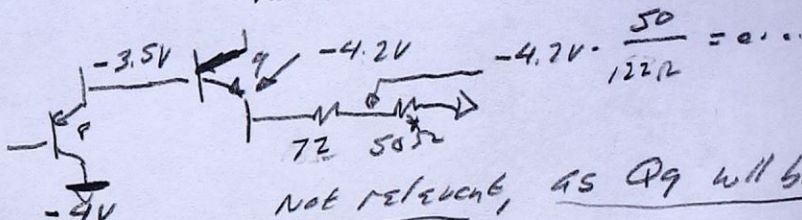 -3.5V 9 -4.2V -4.2V · 50/122Ω = 0...
8
72 50Ω
-9V Not relevant, as Q9 will b